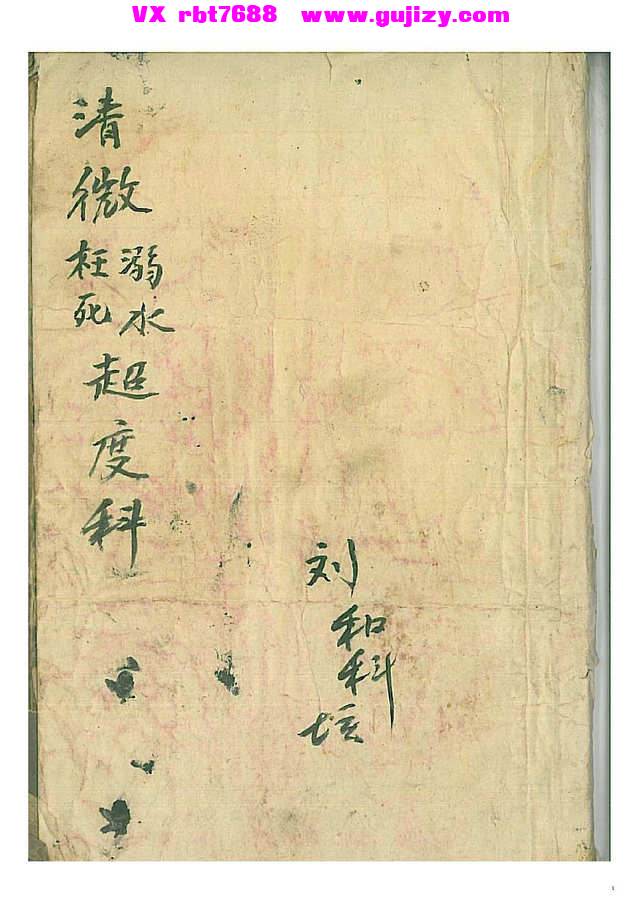 VX rbt7688 www.gujizy.com
清微溺水枉死超度科
刘和科